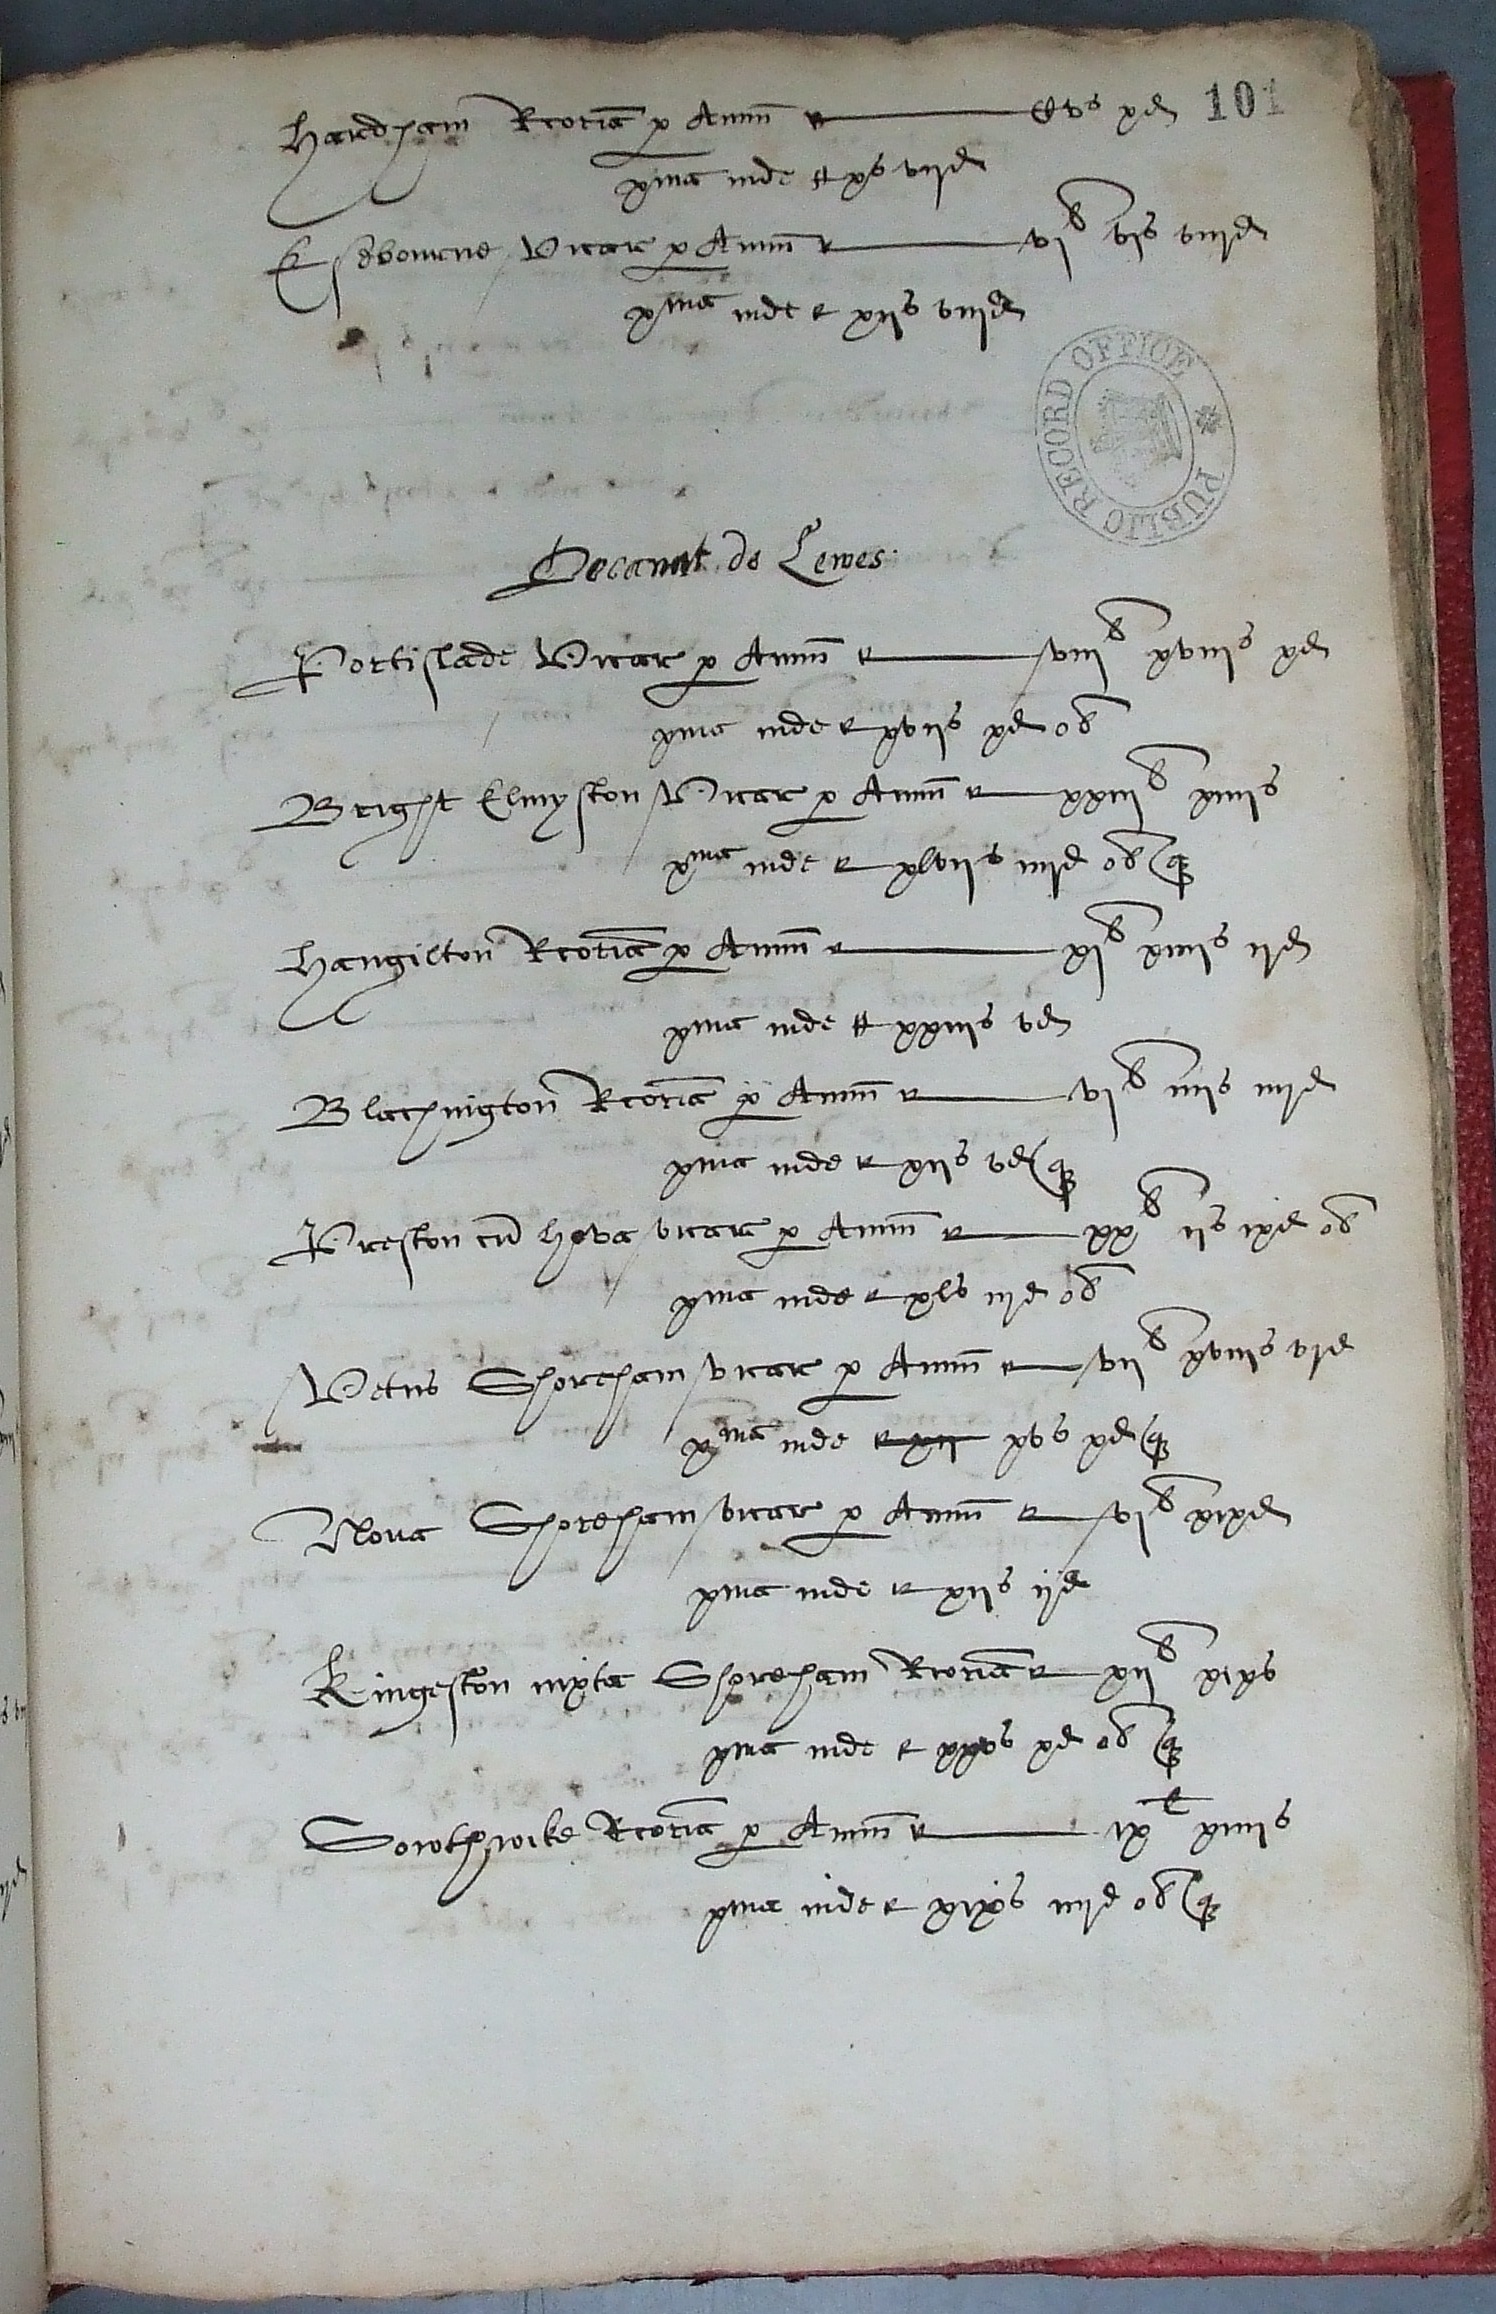 Hardham Rectoria p Annu Cvs xd 101
xma inde xs vijd
Esebourne Vicar p Annu vjli vjs viijd
xma inde xijs viijd
PUBLIC RECORD OFFICE
Decanat de Lewes
Portislade Vicar p Annu viijli xviijs xd
xma inde xvijs xd ob
Bright Elmyston Vicar p Annu xxiijli xiijs
xma inde xlvijs iiijd ob q
Hangilton Rectoria p Annu xjli xiiijs ijd
xma inde xxiijs vd
Blachington Rectoria p Annu vjli iiijs iiijd
xma inde xijs vd q
Preston cu Hova vicar p Annu xxli ijs ixd ob
xma inde xls iijd ob
Vetus Shoreham vicar p Annu vijli xviijs vjd
xma inde xij xvs xd q
Nova Shoreham vicar p Annu vjli xixd
xma inde xijs ijd
Kingeston iuxta Shoreham Rectoria xijli xixs
xma inde xxvs xd ob q
Sowthwike Rectoria p Annu ixli xiijs
xma inde xixs iijd ob q